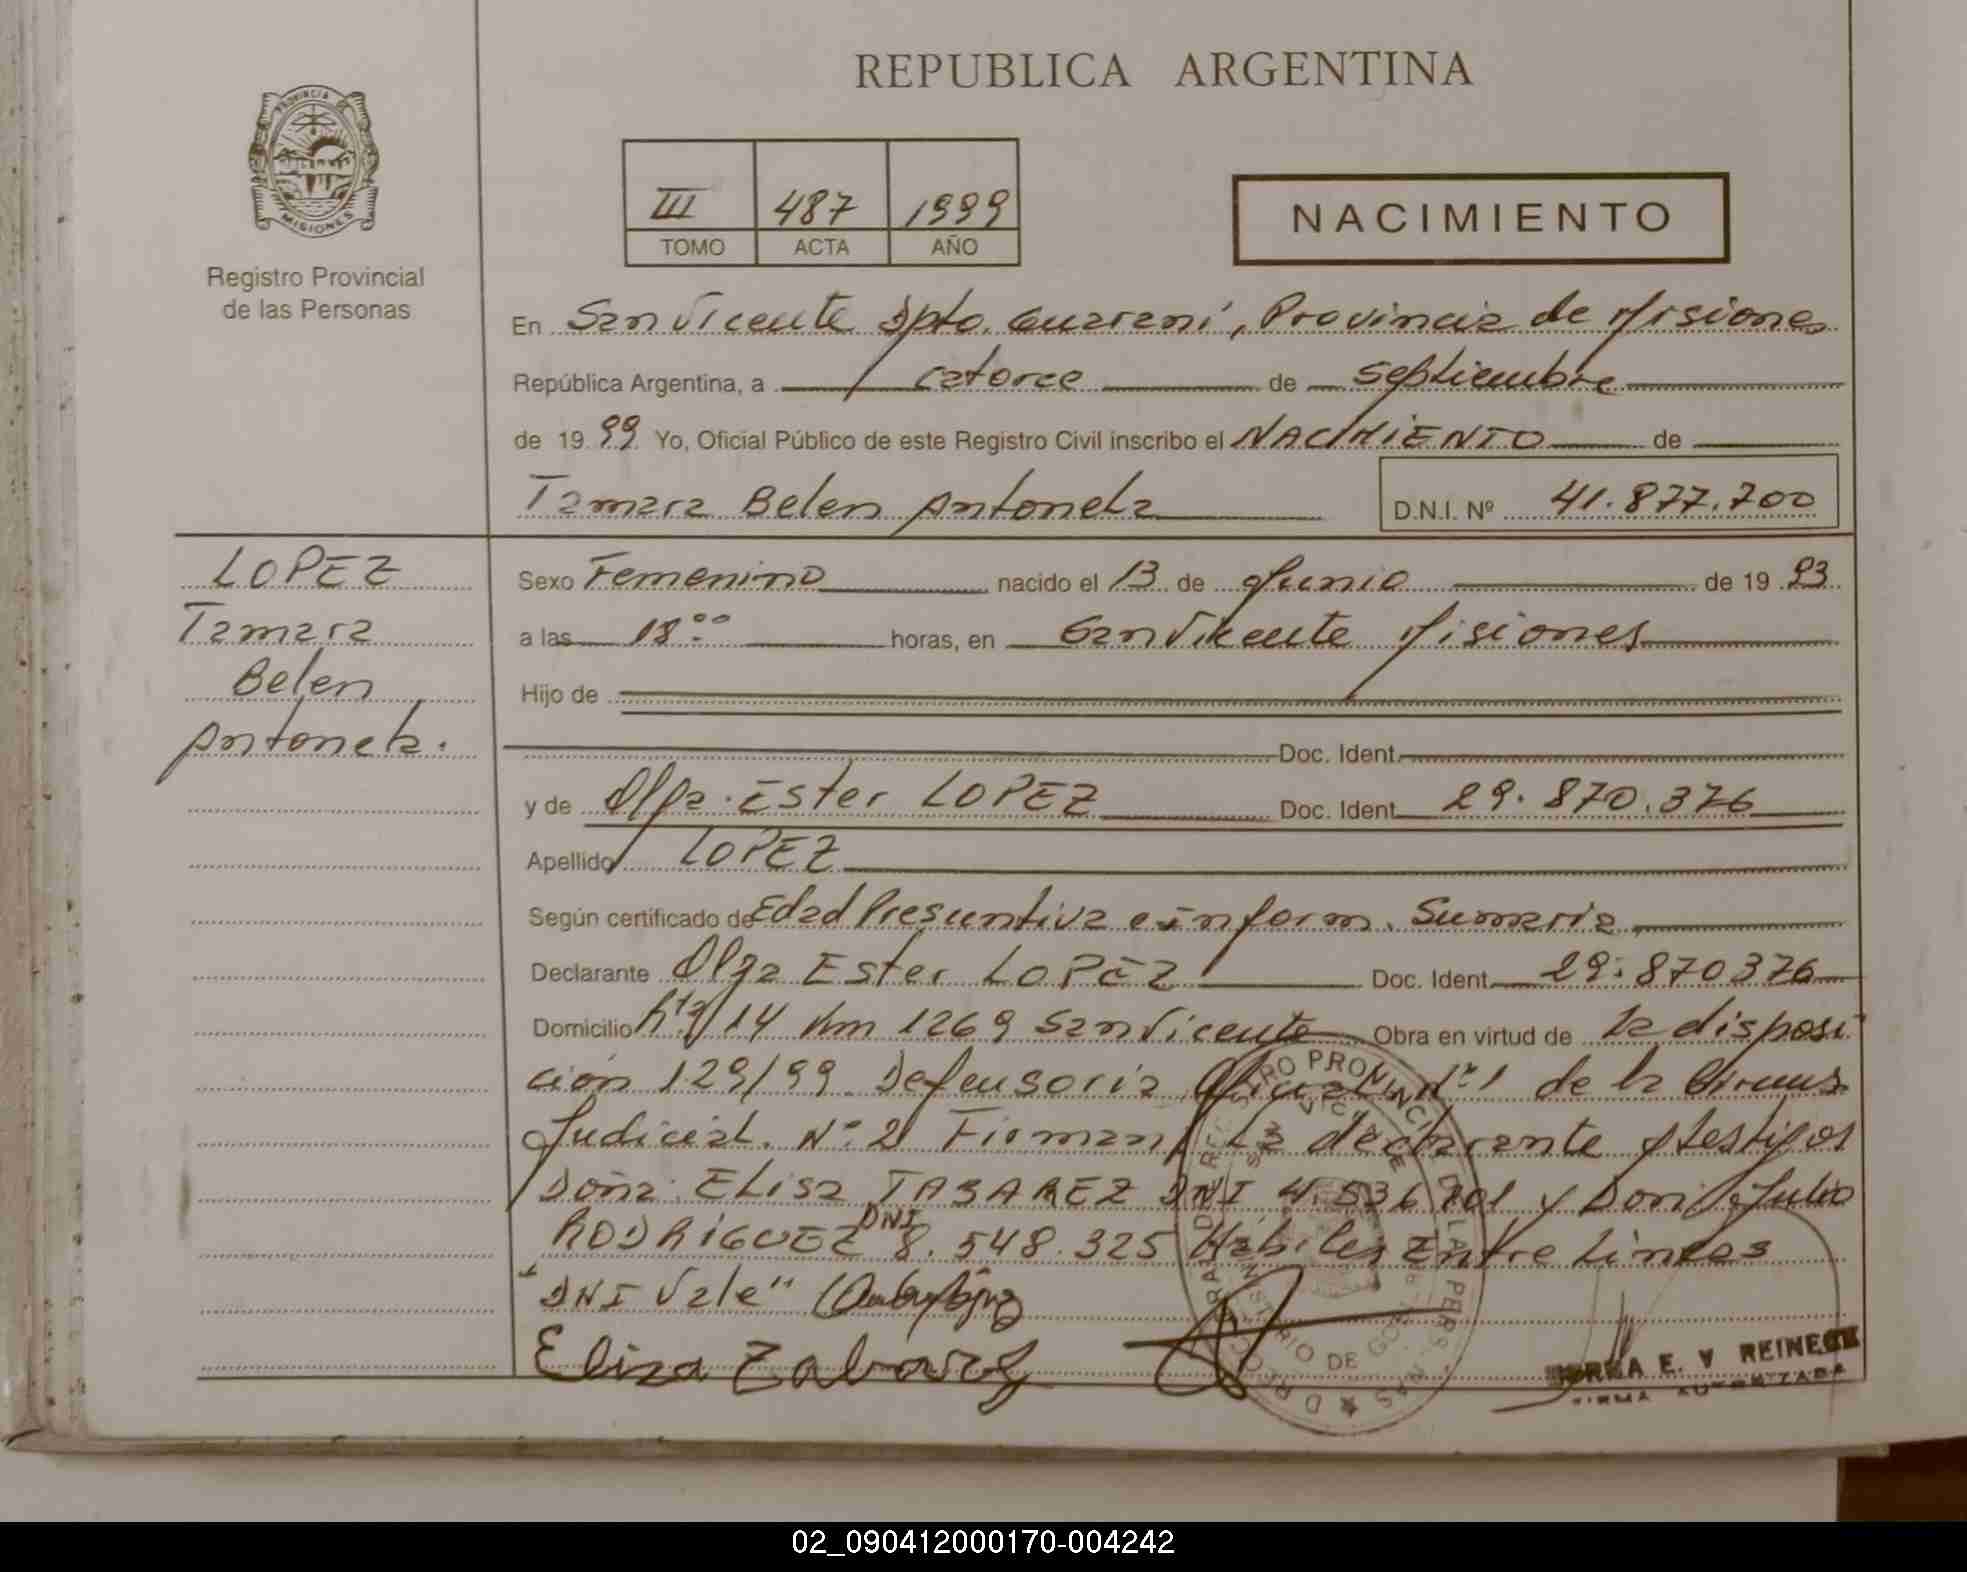 REPUBLICA ARGENTINA
PROVINCIA DE
MISIONES
Registro Provincial
de las Personas
III 487 1999
TOMO ACTA AÑO
NACIMIENTO
En San Vicente Dpto. Guarani, Provincia de Misiones
República Argentina, a catorce de septiembre
de 1999 Yo, Oficial Público de este Registro Civil inscribo el NACIMIENTO de
Tamara Belen Antonela
D.N.I. Nº 41.877.700
LOPEZ
Tamara
Belen
Antonela.
Sexo Femenino nacido el 13 de Junio de 19 93
a las 18:00 horas, en San Vicente Misiones
Hijo de
Doc. Ident.
y de Olga Ester LOPEZ Doc. Ident. 29.870.376
Apellido LOPEZ
Según certificado de Edad Presuntiva e Inform. Sumaria
Declarante Olga Ester LOPEZ Doc. Ident. 29.870376
Domicilio Rta 14 Km 1269 San Vicente Obra en virtud de la disposi
ción 129/99 Defensoria Nº1 de la Circuns
Judicial. Nº 2 Firman la declarante y testigos
Doña Elisa TABAREZ DNI 4.536 701 y Don Julio
RODRIGUEZ DNI 8.548.325 Hábiles Entre Lineas
"DNI Vale"
Eliza
REINECK
FIRMA AUTORIZADA
02_090412000170-004242